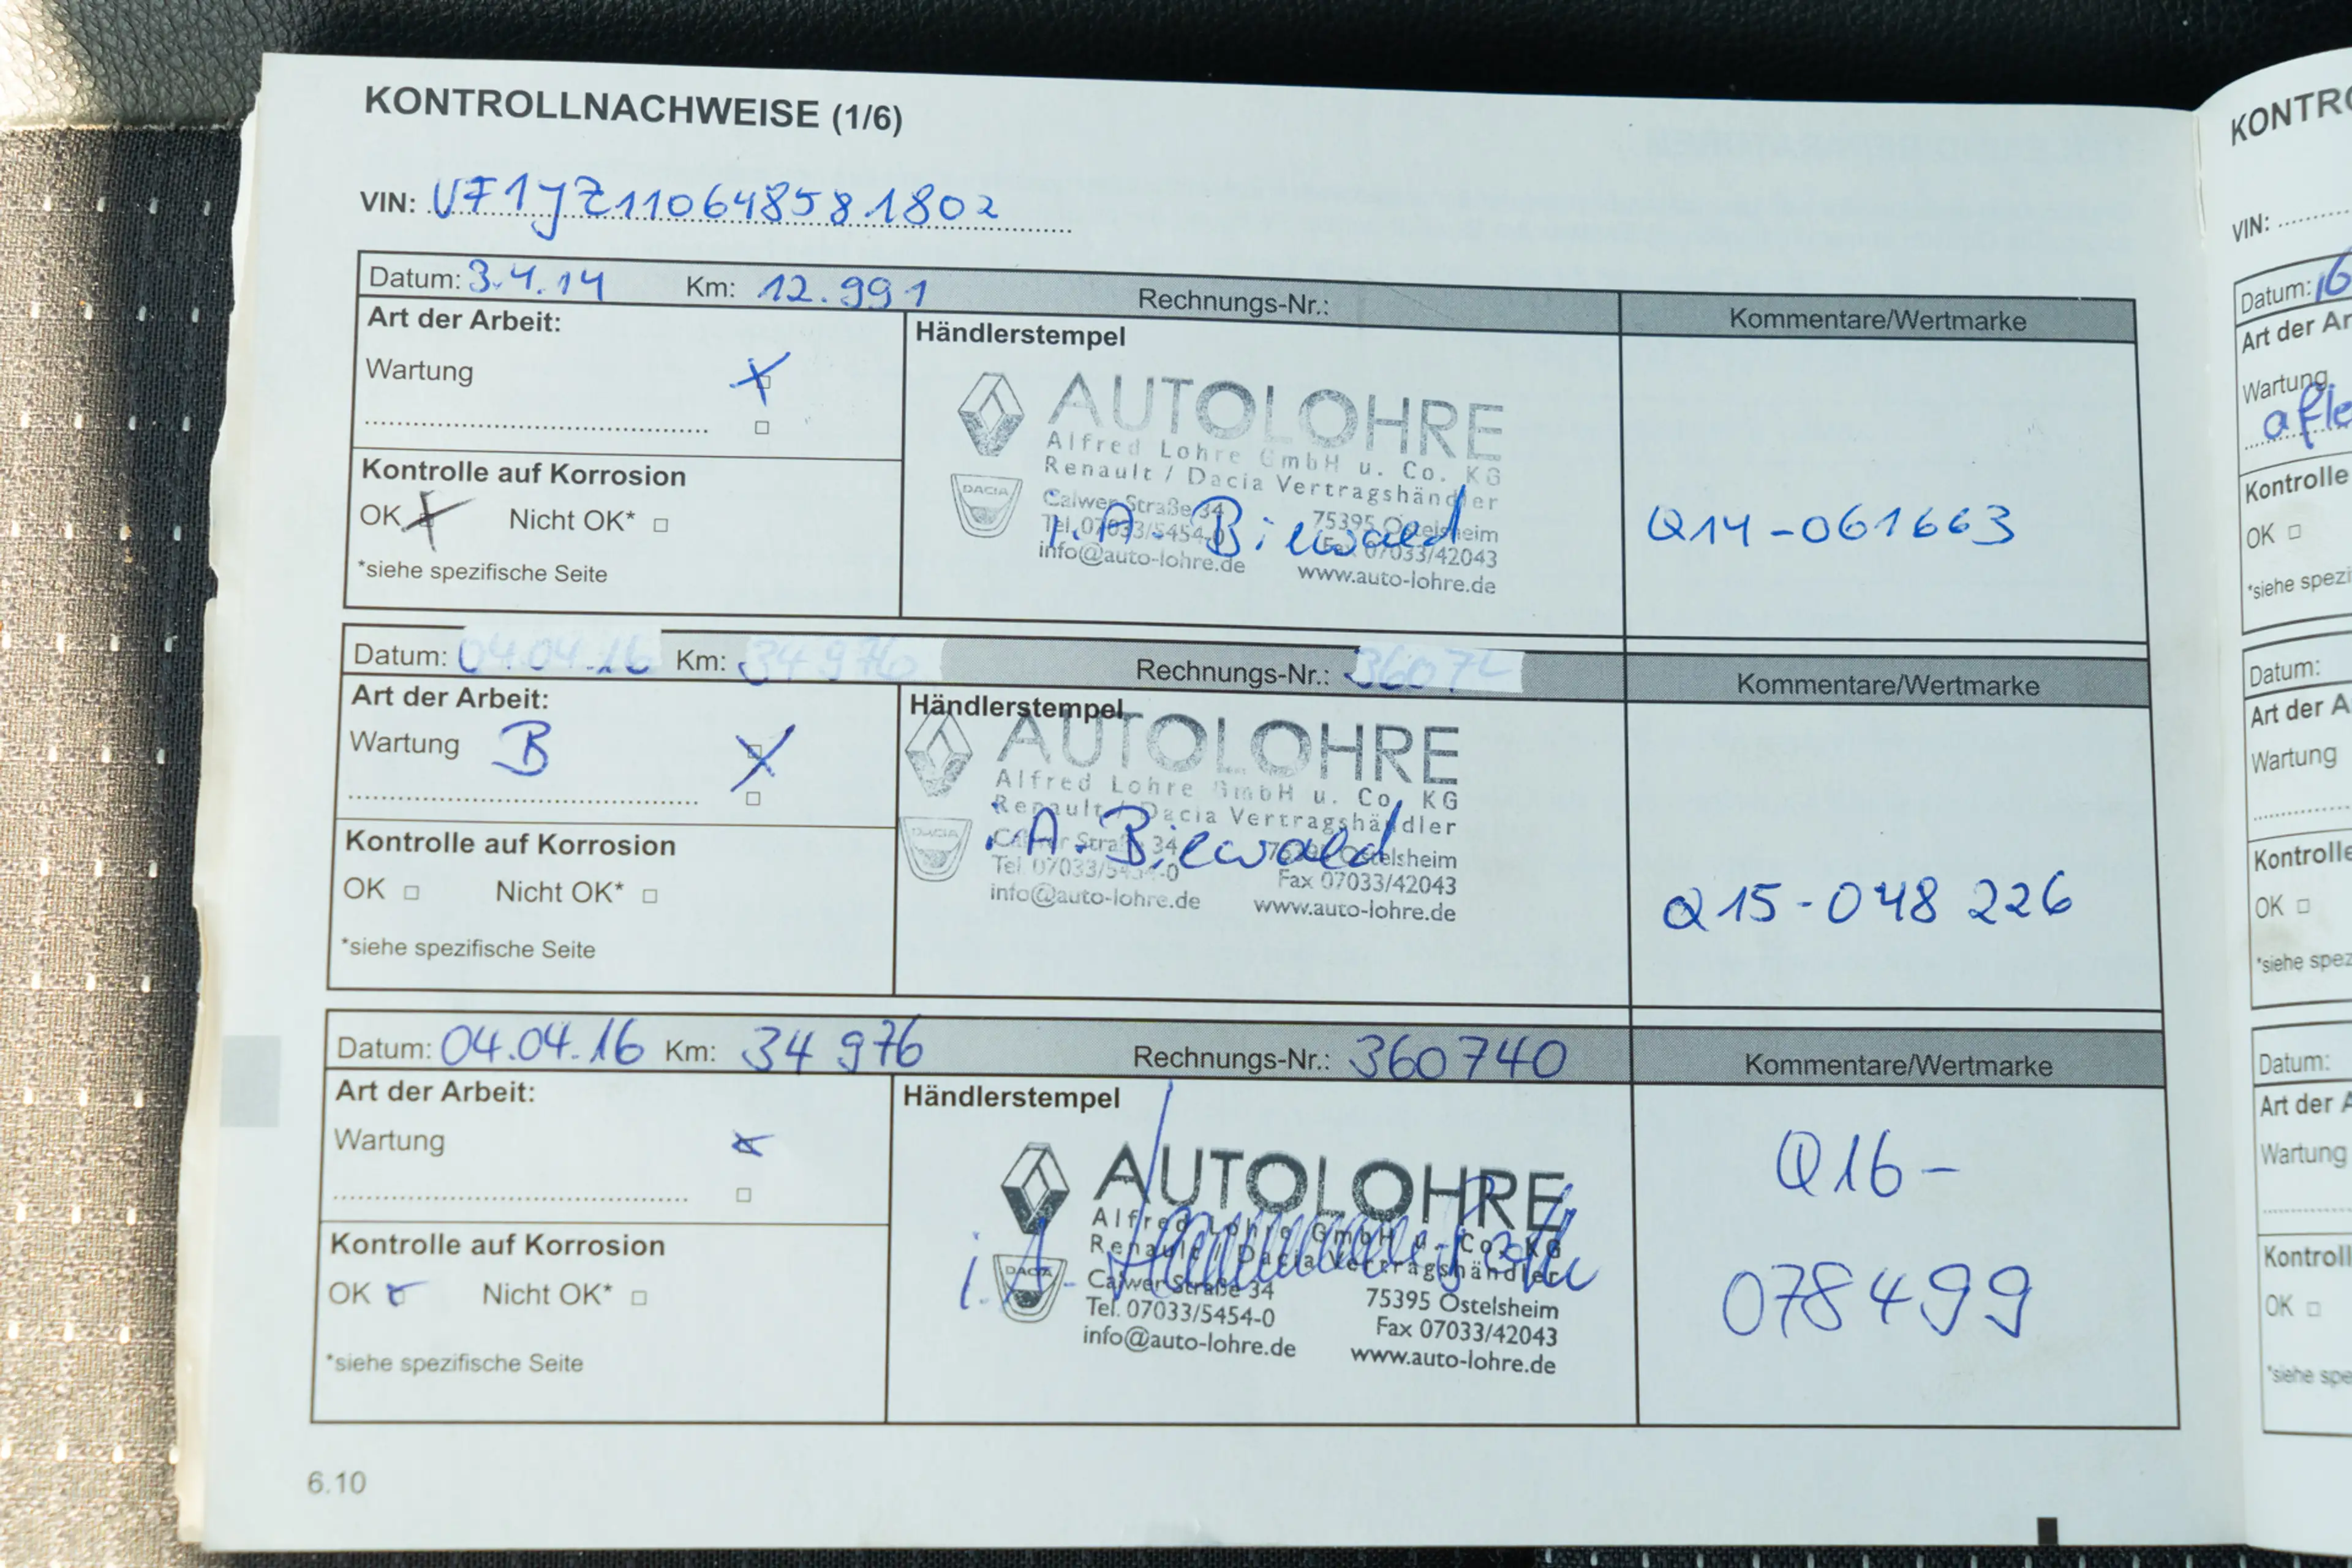 KONTROLLNACHWEISE (1/6)
VIN: VF1JZ110648581802
Datum: 3.4.14 Km: 12.991 Rechnungs-Nr.: Kommentare/Wertmarke
Art der Arbeit:
Wartung
Kontrolle auf Korrosion
OK Nicht OK*
*siehe spezifische Seite
Händlerstempel
AUTOLOHRE
Alfred Lohre GmbH u. Co. KG
Renault / Dacia Vertragshändler
DACIA
Calwer Straße 34 75395 Ostelsheim
Tel. 07033/5454-0 Fax 07033/42043
info@auto-lohre.de www.auto-lohre.de
i.A. Biewald
Q14-061663
Datum: 04.04.16 Km: 34 976 Rechnungs-Nr.: 36074 Kommentare/Wertmarke
Art der Arbeit:
Wartung B
Kontrolle auf Korrosion
OK Nicht OK*
*siehe spezifische Seite
Händlerstempel
AUTOLOHRE
Alfred Lohre GmbH u. Co. KG
Renault / Dacia Vertragshändler
DACIA
Calwer Straße 34 75395 Ostelsheim
Tel. 07033/5454-0 Fax 07033/42043
info@auto-lohre.de www.auto-lohre.de
i.A. Biewald
Q15-048 226
Datum: 04.04.16 Km: 34 976 Rechnungs-Nr.: 360740 Kommentare/Wertmarke
Art der Arbeit:
Wartung
Kontrolle auf Korrosion
OK Nicht OK*
*siehe spezifische Seite
Händlerstempel
AUTOLOHRE
Alfred Lohre GmbH u. Co. KG
Renault / Dacia Vertragshändler
DACIA
Calwer Straße 34 75395 Ostelsheim
Tel. 07033/5454-0 Fax 07033/42043
info@auto-lohre.de www.auto-lohre.de
i.A.
Q16-
078499
6.10
KONTRO
VIN:
Datum: 16
Art der Ar
Wartung
Kontrolle
OK
*siehe spezi
Datum:
Art der A
Wartung
Kontrolle
OK
*siehe spez
Datum:
Art der A
Wartung
Kontroll
OK
*siehe spe